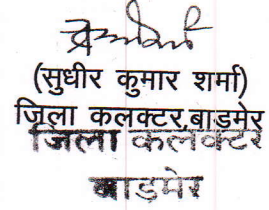 (सुधीर कुमार शर्मा)
जिला कलक्टर,बाडमेर
जिला कलक्टर
बाड़मेर